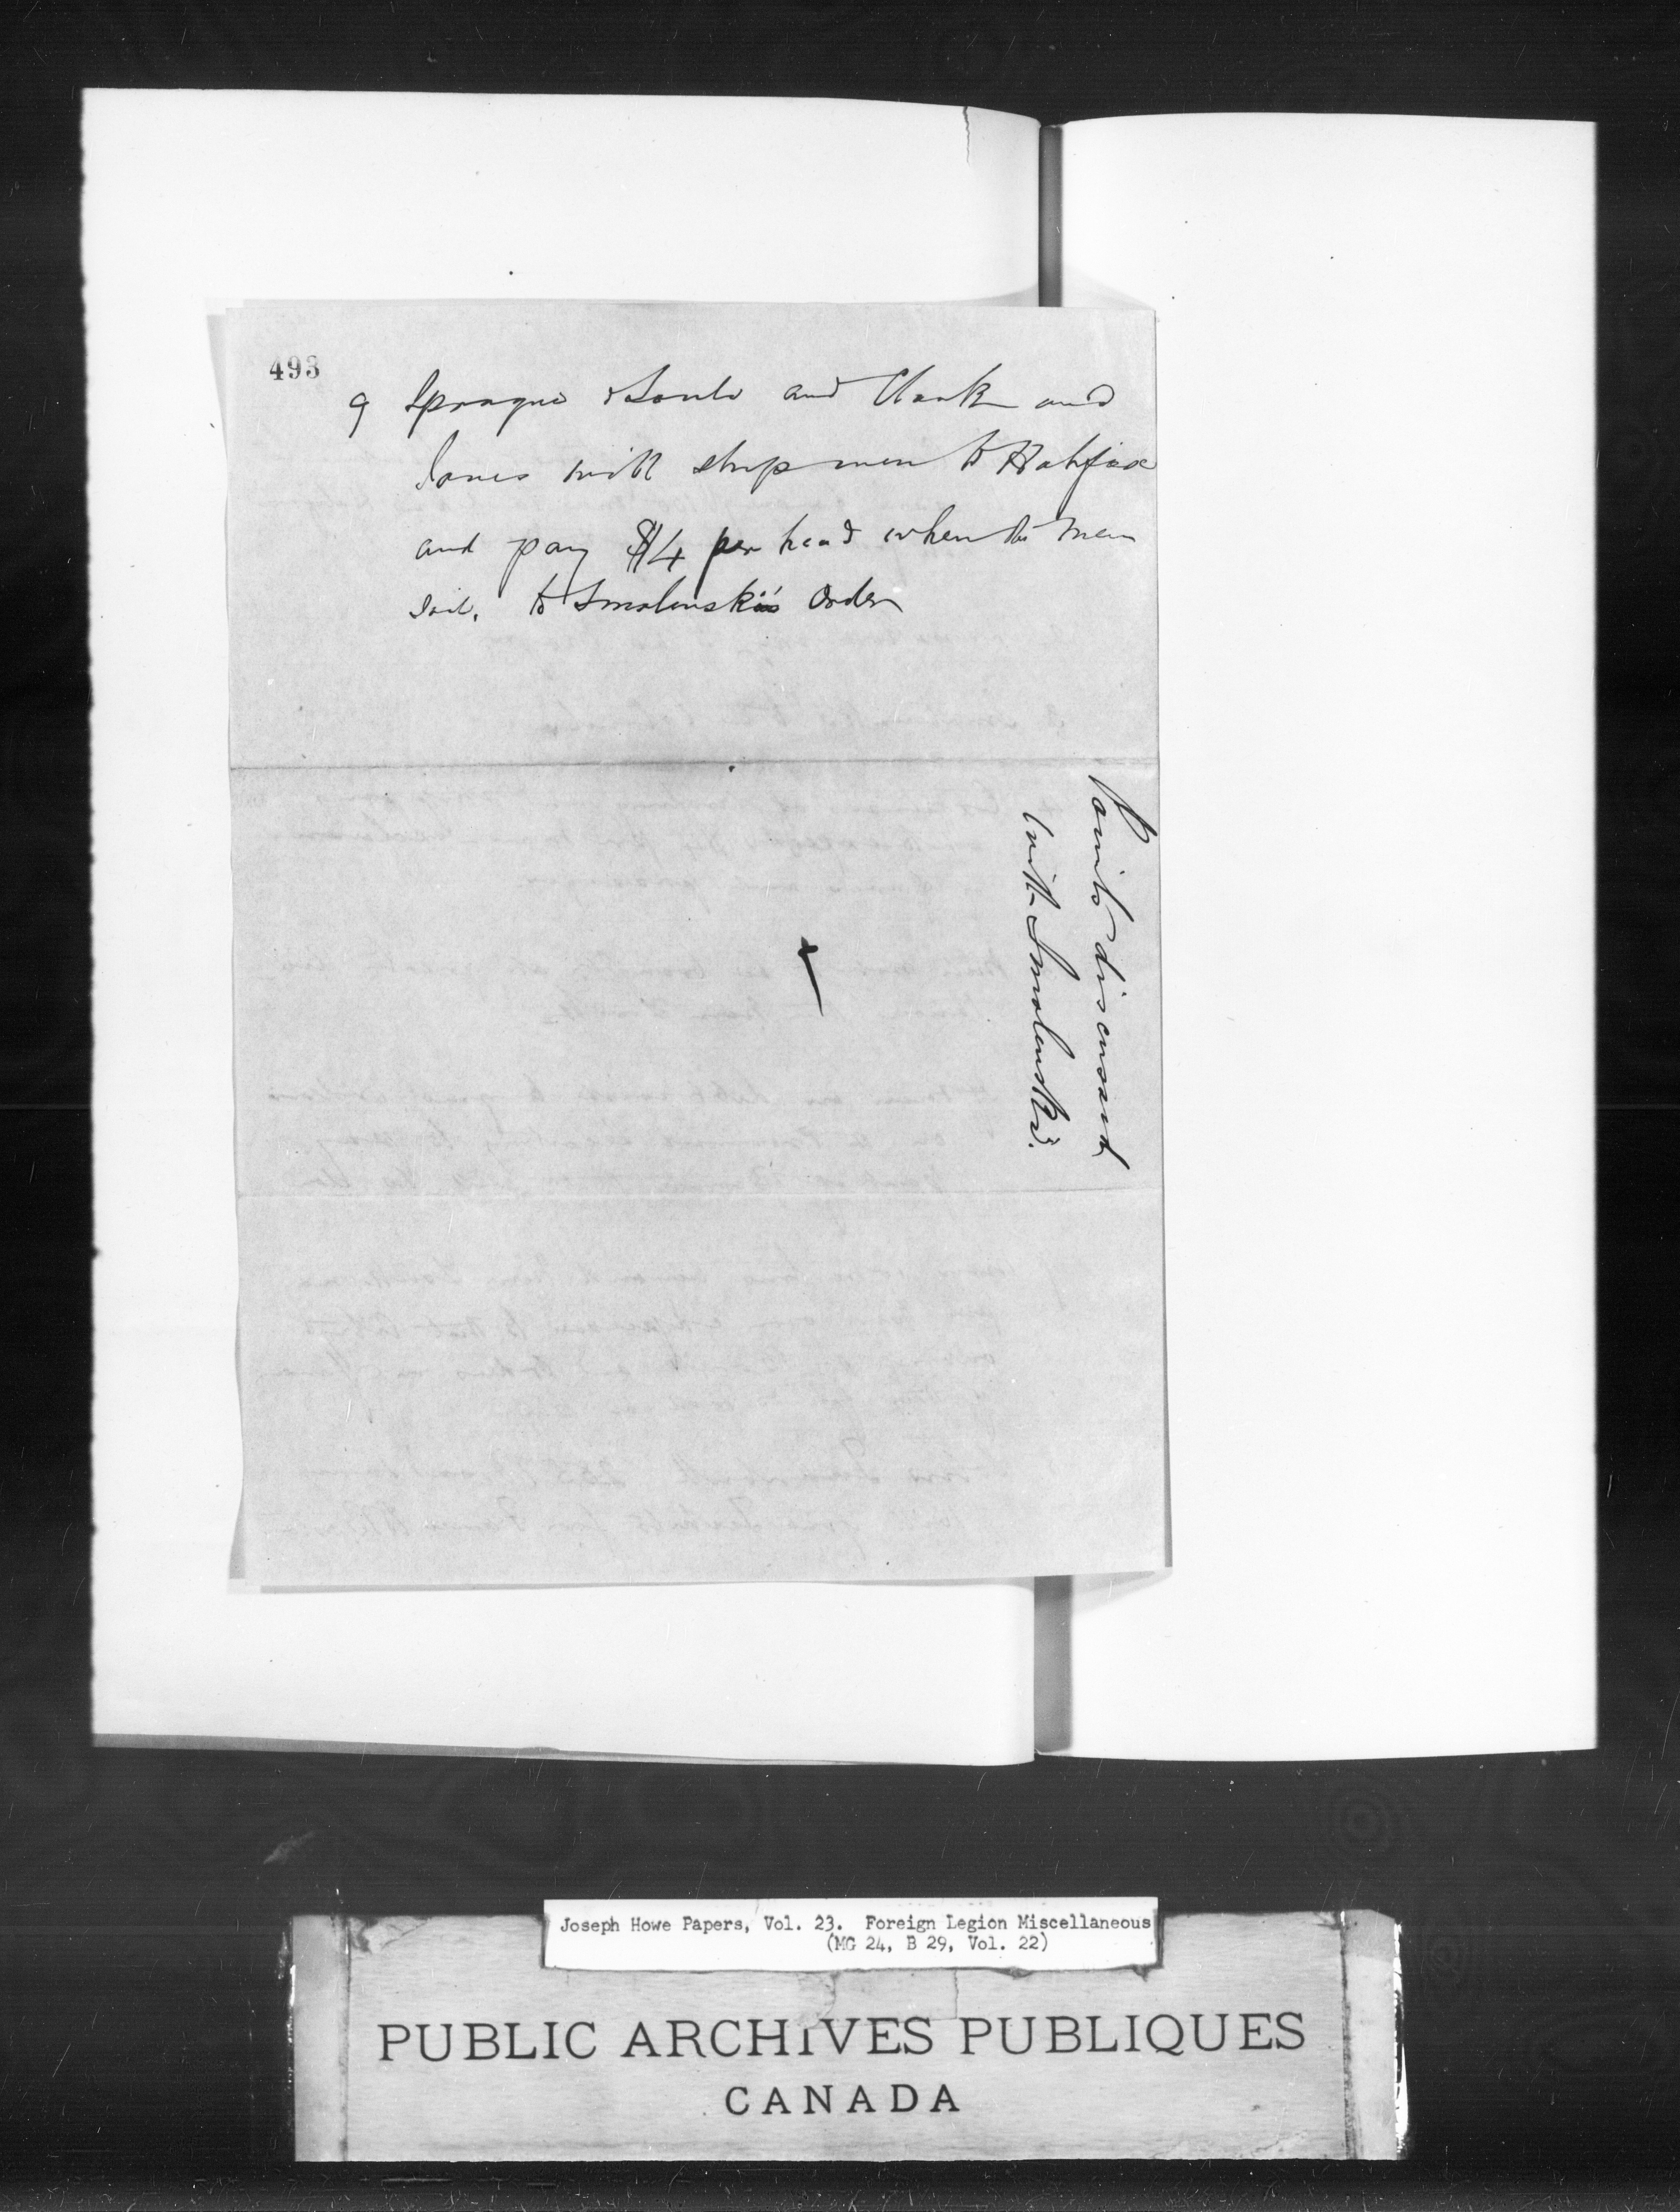 493
9 Sprague & Soule and Clark and
Jones will ship men to Halifax
and pay $4 per head when the men
sail. to Smolenski's order
Points discussed
with Smolenski.
Joseph Howe Papers, Vol. 23. Foreign Legion Miscellaneous
(MG 24, B 29, Vol. 22)
PUBLIC ARCHIVES PUBLIQUES
CANADA